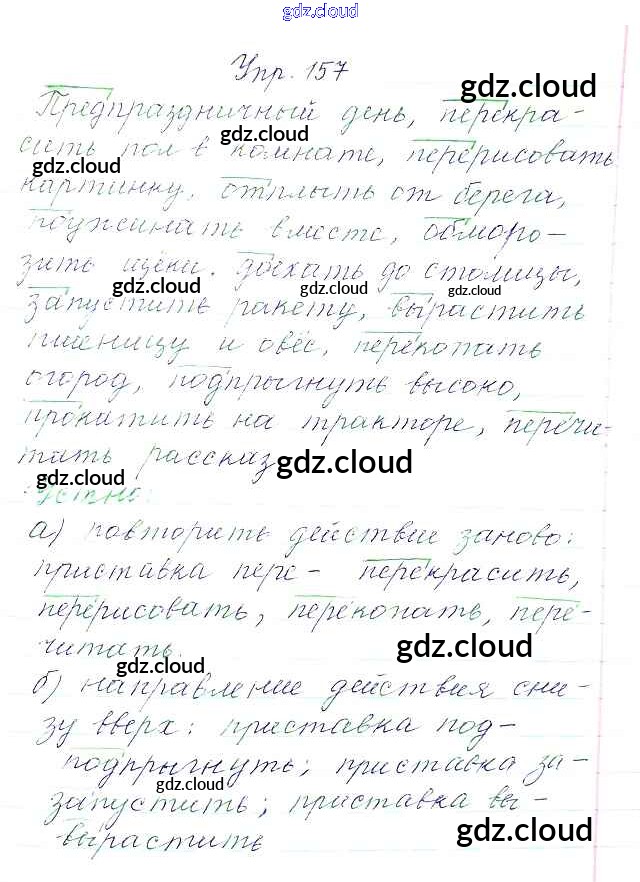 gdz.cloud
Упр. 157
gdz.cloud
Предпраздничный день, перекра-
gdz.cloud
сить пол в комнате, перерисовать
gdz.cloud gdz.cloud
картинку, отплыть от берега,
поужинать вместе, обморо-
зить щёки. Заехать до столицы,
gdz.cloud gdz.cloud gdz.cloud
запустить ракету, вырастить
пшеницу и овёс, перекопать
огород, подпрыгнуть высоко,
прокатить на тракторе, перечи-
тать рассказ
gdz.cloud
Устно:
а) повторить действие заново:
приставка пере- перекрасить,
перерисовать, перекопать, пере-
читать.
gdz.cloud
gdz.cloud
б) направление действия сни-
зу вверх: приставка под-
подпрыгнуть; приставка за-
gdz.cloud
запустить; приставка вы-
вырастить
gdz.cloud